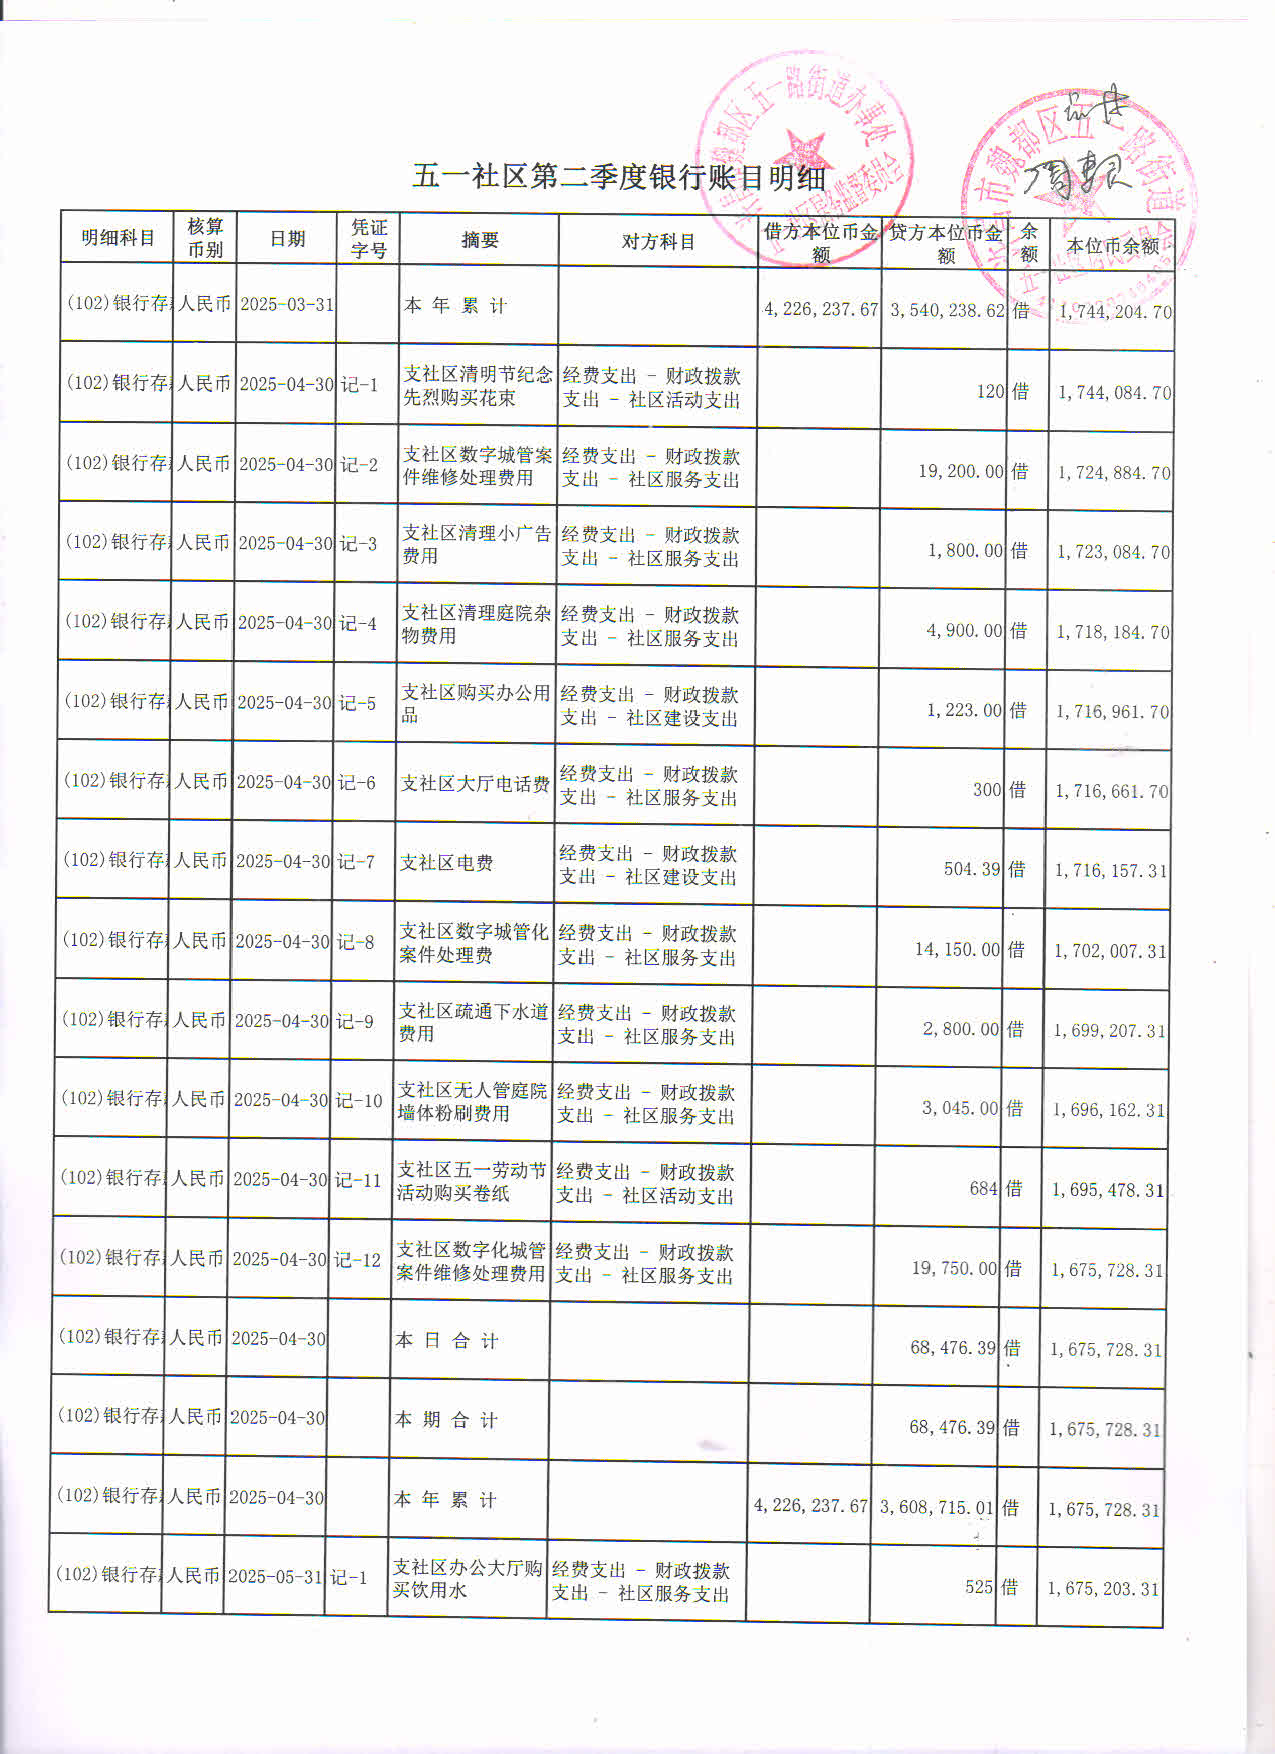 五一社区第二季度银行账目明细
明细科目 核算币别 日期 凭证字号 摘要 对方科目 借方本位币金额 贷方本位币金额 余额 本位币余额
(102)银行存 人民币 2025-03-31 本 年 累 计 4,226,237.67 3,540,238.62 借 1,744,204.70
(102)银行存 人民币 2025-04-30 记-1 支社区清明节纪念先烈购买花束 经费支出 - 财政拨款支出 - 社区活动支出 120 借 1,744,084.70
(102)银行存 人民币 2025-04-30 记-2 支社区数字城管案件维修处理费用 经费支出 - 财政拨款支出 - 社区服务支出 19,200.00 借 1,724,884.70
(102)银行存 人民币 2025-04-30 记-3 支社区清理小广告费用 经费支出 - 财政拨款支出 - 社区服务支出 1,800.00 借 1,723,084.70
(102)银行存 人民币 2025-04-30 记-4 支社区清理庭院杂物费用 经费支出 - 财政拨款支出 - 社区服务支出 4,900.00 借 1,718,184.70
(102)银行存 人民币 2025-04-30 记-5 支社区购买办公用品 经费支出 - 财政拨款支出 - 社区建设支出 1,223.00 借 1,716,961.70
(102)银行存 人民币 2025-04-30 记-6 支社区大厅电话费 经费支出 - 财政拨款支出 - 社区服务支出 300 借 1,716,661.70
(102)银行存 人民币 2025-04-30 记-7 支社区电费 经费支出 - 财政拨款支出 - 社区建设支出 504.39 借 1,716,157.31
(102)银行存 人民币 2025-04-30 记-8 支社区数字城管化案件处理费 经费支出 - 财政拨款支出 - 社区服务支出 14,150.00 借 1,702,007.31
(102)银行存 人民币 2025-04-30 记-9 支社区疏通下水道费用 经费支出 - 财政拨款支出 - 社区服务支出 2,800.00 借 1,699,207.31
(102)银行存 人民币 2025-04-30 记-10 支社区无人管庭院墙体粉刷费用 经费支出 - 财政拨款支出 - 社区服务支出 3,045.00 借 1,696,162.31
(102)银行存 人民币 2025-04-30 记-11 支社区五一劳动节活动购买卷纸 经费支出 - 财政拨款支出 - 社区活动支出 684 借 1,695,478.31
(102)银行存 人民币 2025-04-30 记-12 支社区数字化城管案件维修处理费用 经费支出 - 财政拨款支出 - 社区服务支出 19,750.00 借 1,675,728.31
(102)银行存 人民币 2025-04-30 本 日 合 计 68,476.39 借 1,675,728.31
(102)银行存 人民币 2025-04-30 本 期 合 计 68,476.39 借 1,675,728.31
(102)银行存 人民币 2025-04-30 本 年 累 计 4,226,237.67 3,608,715.01 借 1,675,728.31
(102)银行存 人民币 2025-05-31 记-1 支社区办公大厅购买饮用水 经费支出 - 财政拨款支出 - 社区服务支出 525 借 1,675,203.31